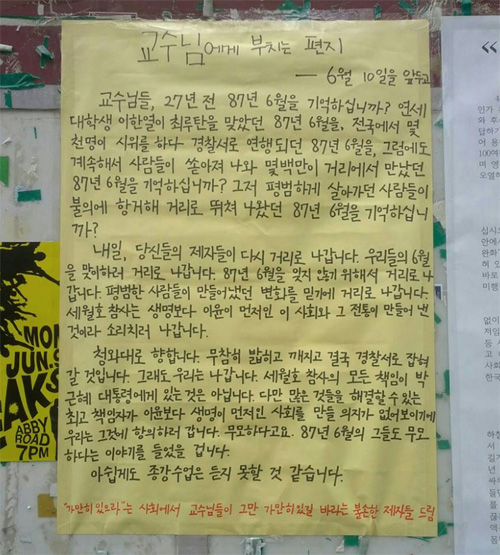 교수님에게 부치는 편지
— 6월 10일을 앞두고
교수님들, 27년 전 87년 6월을 기억하십니까? 연세
대학생 이한열이 최루탄을 맞았던 87년 6월을, 전국에서 몇
천명이 시위를 하다 경찰서로 연행되던 87년 6월을, 그럼에도
계속해서 사람들이 쏟아져 나와 몇백만이 거리에서 만났던
87년 6월을 기억하십니까? 그저 평범하게 살아가던 사람들이
불의에 항거해 거리로 뛰쳐 나왔던 87년 6월을 기억하십니
까?
내일, 당신들의 제자들이 다시 거리로 나갑니다. 우리들의 6월
을 맞이하러 거리로 나갑니다. 87년 6월을 잊지 않기 위해서 거리로 나
갑니다. 평범한 사람들이 만들어냈던 변화를 믿기에 거리로 나갑니다.
세월호 참사는 생명보다 이윤이 먼저인 이 사회와 그 전통이 만들어 낸
것이라 소리치러 나갑니다.
청와대로 향합니다. 무참히 밟히고 깨지고 결국 경찰서로 잡혀
갈 것입니다. 그래도 우리는 나갑니다. 세월호 참사의 모든 책임이 박
근혜 대통령에게 있는 것은 아닙니다. 다만 많은 것들을 해결할 수 있는
최고 책임자가 이윤보다 생명이 먼저인 사회를 만들 의지가 없어보이기에
우리는 그것에 항의하러 갑니다. 무모하다고요. 87년 6월의 그들도 무모
하다는 이야기를 들었을 겁니다.
아쉽게도 종강수업은 듣지 못할 것 같습니다.
"가만히 있으라"는 사회에서 교수님들이 그만 가만히있길 바라는 불손한 제자들 드림
MON
JUN.
AKS
ABBY
ROAD
7PM